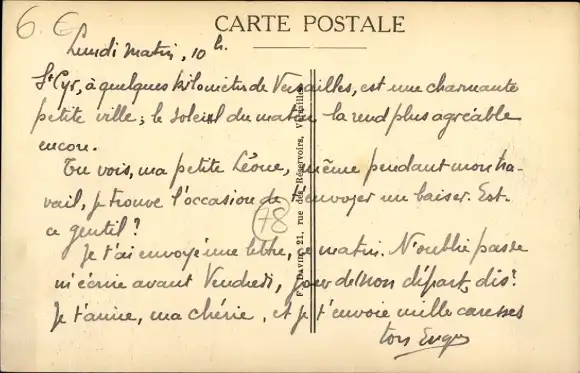 6 €
CARTE POSTALE
Lundi matin, 10 h.
St Cyr, à quelques kilomètres de Versailles, est une charmante
petite ville ; le soleil du matin la rend plus agréable
encore.
Tu vois, ma petite Léone, même pendant mon tra-
vail, je trouve l'occasion de t'envoyer un baiser. Est-
ce gentil ?
Je t'ai envoyé une lettre, ce matin. N'oublie pas de
m'écrire avant Vendredi, jour de mon départ, dis ?
Je t'aime, ma chérie, et je t'envoie mille caresses
ton
78
F. DAVID, 21, rue des Réservoirs, Versailles